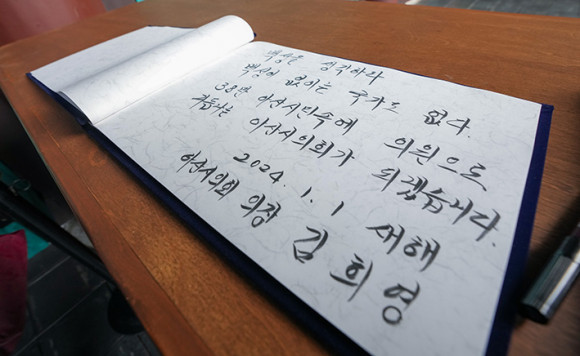 백성을 생각하라
백성이 없이는 국가도 없다
38만 아산시민속에 의원으로
거듭나는 아산시의회가 되겠습니다.
2024. 1. 1 새해
아산시의회 의장 김희영